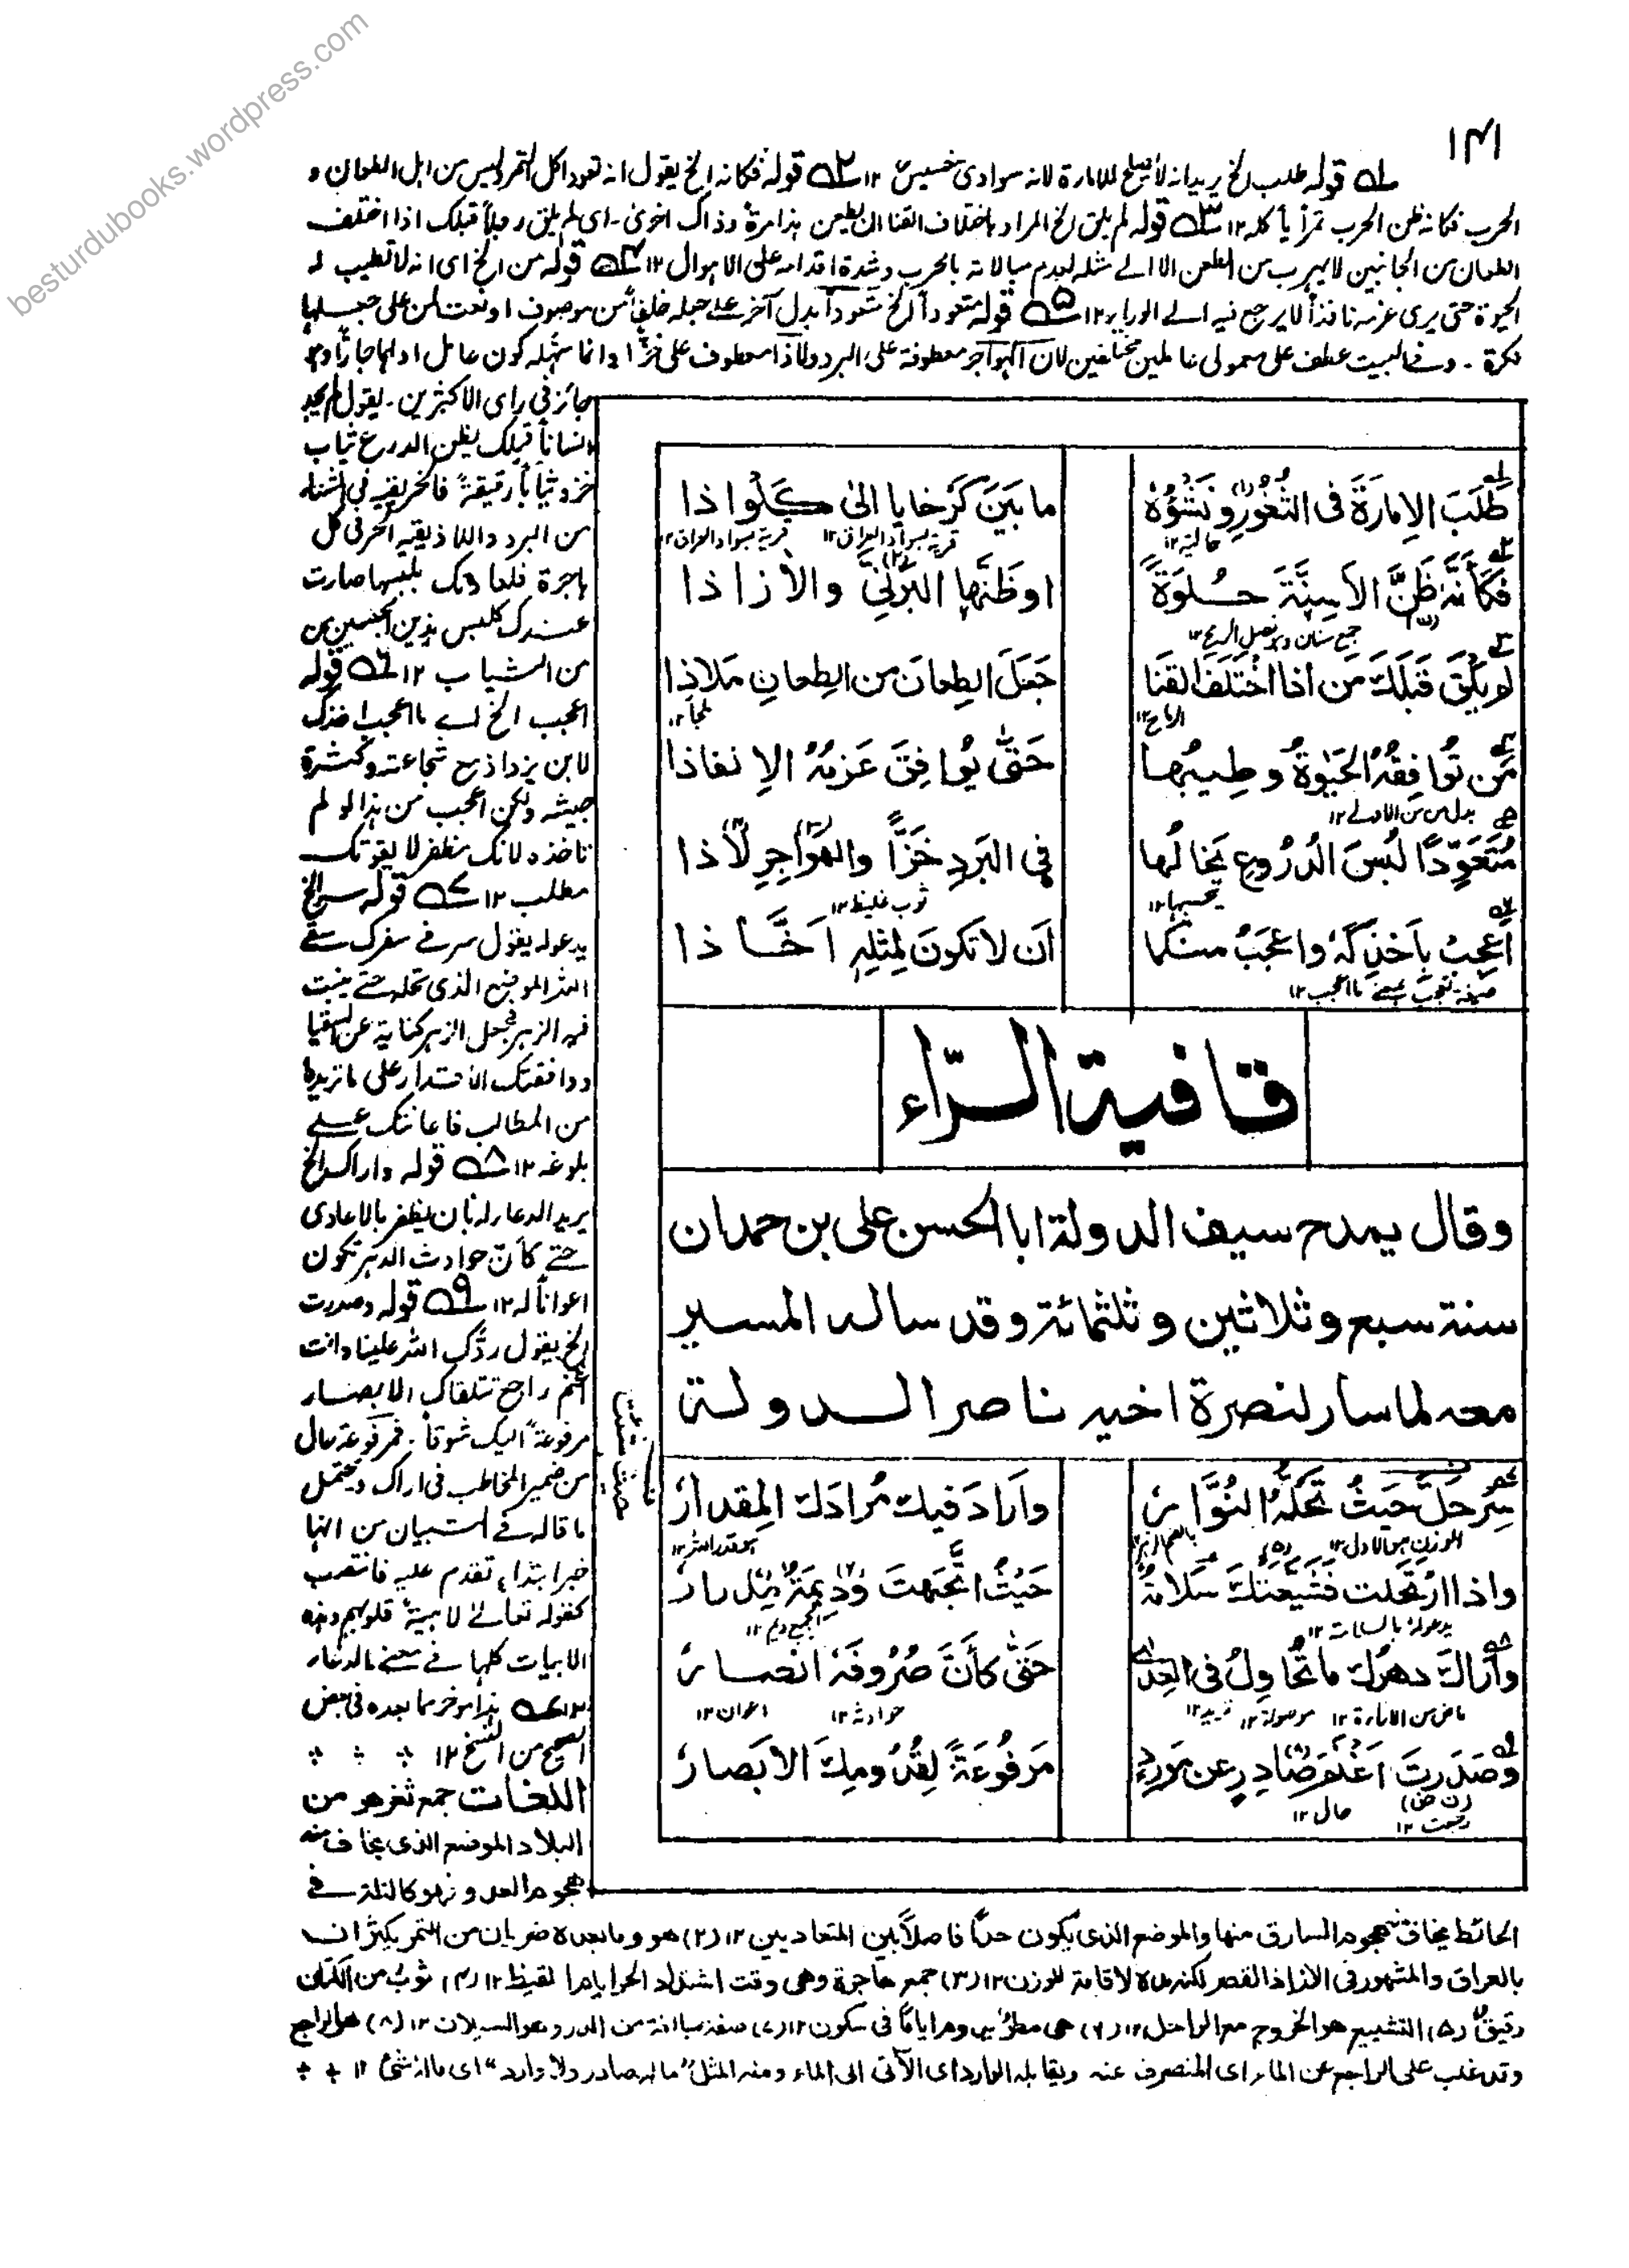 besturdubooks.wordpress.com
۱۴۱
۱ قوله طلب الخ يريد انه لا يصلح للامارة لانه سوادى خسيس ۱۲ ۲ قوله فكانه الخ يقول انه تعود اكل التمر وليس من اهل الطعان و
الحرب فكانه ظن الحرب تمراً يأكله ۱۲ ۳ قوله لم يلق الخ المراد باختلاف القنا ان يطعن بذا مرة وذاك اخرى ۔ اى لم يلق رجلاً قبلك اذا اختلف
الطعان من الجانبين لا يهرب من الطعن الا الى مثله لعدم مبالاته بالحرب وشدة اقدامه على الاهوال ۱۲ ۴ قوله من الخ اى انه لا تطيب له
الحيوة حتى يرى عزمه نافذاً لا يرجع فيه الى الوراء ۱۲ ۵ قوله متعوداً الخ متعوداً بدل آخر على جعله خلفاً من موصوف او نعت لمن على جعلها
نكرة ۔ وفى البيت عطف على معمولى عاملين مختلفين لان الهواجر معطوفة على البرد ولاذا معطوف على خزّاً وانما سهله كون عامل اولهما جارّاً وهو
جائز فى راى الاكثرين ۔ يقول لم يجد
انساناً قبلك يظن الدرع ثياب
خز وثياباً رقيقةً فالخز يقيه فى الشتاء
من البرد واللاذ يقيه الحر فى كل
هاجرة فلعادتك بلبسها صارت
عندك كلبس هذين الجنسين من
من الثياب ۱۲ ۶ قوله
اعجب الخ اى ما اعجب اخذك
لابن يزداذ مع شجاعته وكثرة
جيشه ولكن اعجب من هذا لو لم
تاخذه لانك مظفر لا يفوتك
مطلب ۱۲ ۷ قوله سر الخ
يدعو له يقول سر فى سفرك سقى
الله الموضع الذى تحله حتى ينبت
فيه الزهر فجعل الزهر كناية عن السقيا
ووافقتك الاقدار على ما تريدها
من المطالب فاعانتك على
بلوغه ۱۲ ۸ قوله واراك الخ
يريد الدعاء له بان يظفر بالاعادى
حتى كأنّ حوادث الدهر تكون
اعواناً له ۱۲ ۹ قوله وصدرت
الخ يقول ردّك الله علينا وانت
اغنم راجع تتلقاك الابصار
مرفوعةً اليك شوقاً ۔ فمرفوعة حال
من ضمير المخاطب فى اراك ويحتمل
ما قاله فى التبيان من انها
خبر ابتداء تقدم عليه فانتصب
كقوله تعالىٰ لاهيةً قلوبهم وهذه
الابيات كلها فى معنى الدعاء
۱۲ هذا مؤخر مما بعده فى بعض
الصحيح من النسخ ۱۲
اللغات جمع ثغر هو من
البلاد الموضع الذى يخاف منه
هجوم العدو فهو كالثلمة فى
طَلَبَ الاِمَارَةَ فى الثُّغُورِ ونَشْؤُهُ
ما بَيْنَ كَرْخايا الىٰ كَلْواذا
حاليه ۱۲
قرية بسواد العراق ۱۲ قرية بسواد العراق ۱۲
فكَأنَّهُ ظَنَّ الاَسِنَّةَ حُلوَةً
اوظَنَّها البَرْنِيَّ والاٰزاذا
جمع سنان وهو نصل الرمح ۱۲
لم يَلْقَ قَبلَكَ مَن اذا اخْتَلَفَ القَنَا
جَعَلَ الطِعانَ من الطِعانِ مَلاذا
الرماح ۱۲
ملجأ ۱۲
مَن لا تُوافِقُهُ الحَيٰوةُ وطِيبُها
حَتّٰى يُوافِقَ عَزمُهُ الاِنفاذا
بدل من من الاولى ۱۲
مُتَعَوِّدًا لُبسَ الدُرُوعِ يَخالُها
فى البَردِ خَزًّا والهَوَاجِرِ لاذا
يحسبها ۱۲
ثوب غليظ ۱۲
اَعجِبْ باَخذِكَهُ واعجَبُ منكما
اَن لا تكونَ لِمِثلِهٖ اَخَّاذا
صيغة تعجب بمعنى ما اعجب ۱۲
قافية الرّاء
وقال يمدح سيف الدولة ابا الحسن على بن حمدان
سنة سبع وثلاثين وثلثمائة وقد ساله المسير
معه لما سار لنصرة اخيه ناصر الدولة
سِرْ حَلَّ حَيثُ تَحُلُّهُ النُوَّارُ
واَرادَ فيكَ مُرادَكَ المِقدارُ
واذا ارْتَحَلتَ فشَيَّعَتكَ سَلامَةٌ
حَيْثُ اتَّجَهتَ ودِيمَةٌ مِدرارُ
يدعو له بالسلامة ۱۲
واَراكَ دهرُكَ ما تُحاوِلُ فى العِدىٰ
حَتّٰى كأنَّ صُرُوفَهُ انصارُ
ماض من الاراءة ۱۲ موصولة ۱۲ تريد ۱۲
حوادثه ۱۲ اعوان ۱۲
وصَدَرتَ اَغنَمَ صادِرٍ عن مَورِدٍ
مَرفُوعَةً لِقُدُومِكَ الاَبصارُ
رجعت ۱۲ حال ۱۲
الحائط يخاف هجوم السارق منها والموضع الذى يكون حدًّا فاصلاً بين المتعاديين ۱۲ (۲) هو وما بعده ضربان من التمر يكثران
بالعراق والمشهور فى الازاذ القصر لكنه مده لاقامة للوزن ۱۲ (۳) جمع هاجرة وهى وقت اشتداد الحر ايام القيظ ۱۲ (۴) ثوبٌ من الكتان
رقيقٌ (۵) التشييع هو الخروج مع الراحل ۱۲ (۶) هى مطر يدوم اياماً فى سكون ۱۲ (۷) صفة مبالغة من الدر وهو السيلان ۱۲ (۸) هو الراجع
وقد غلب على الراجع عن الماء اى المنصرف عنه ويقابله الوارد اى الآتى الى الماء ومنه المثل "ما له صادر ولا وارد" اى ماله شئ ۱۲